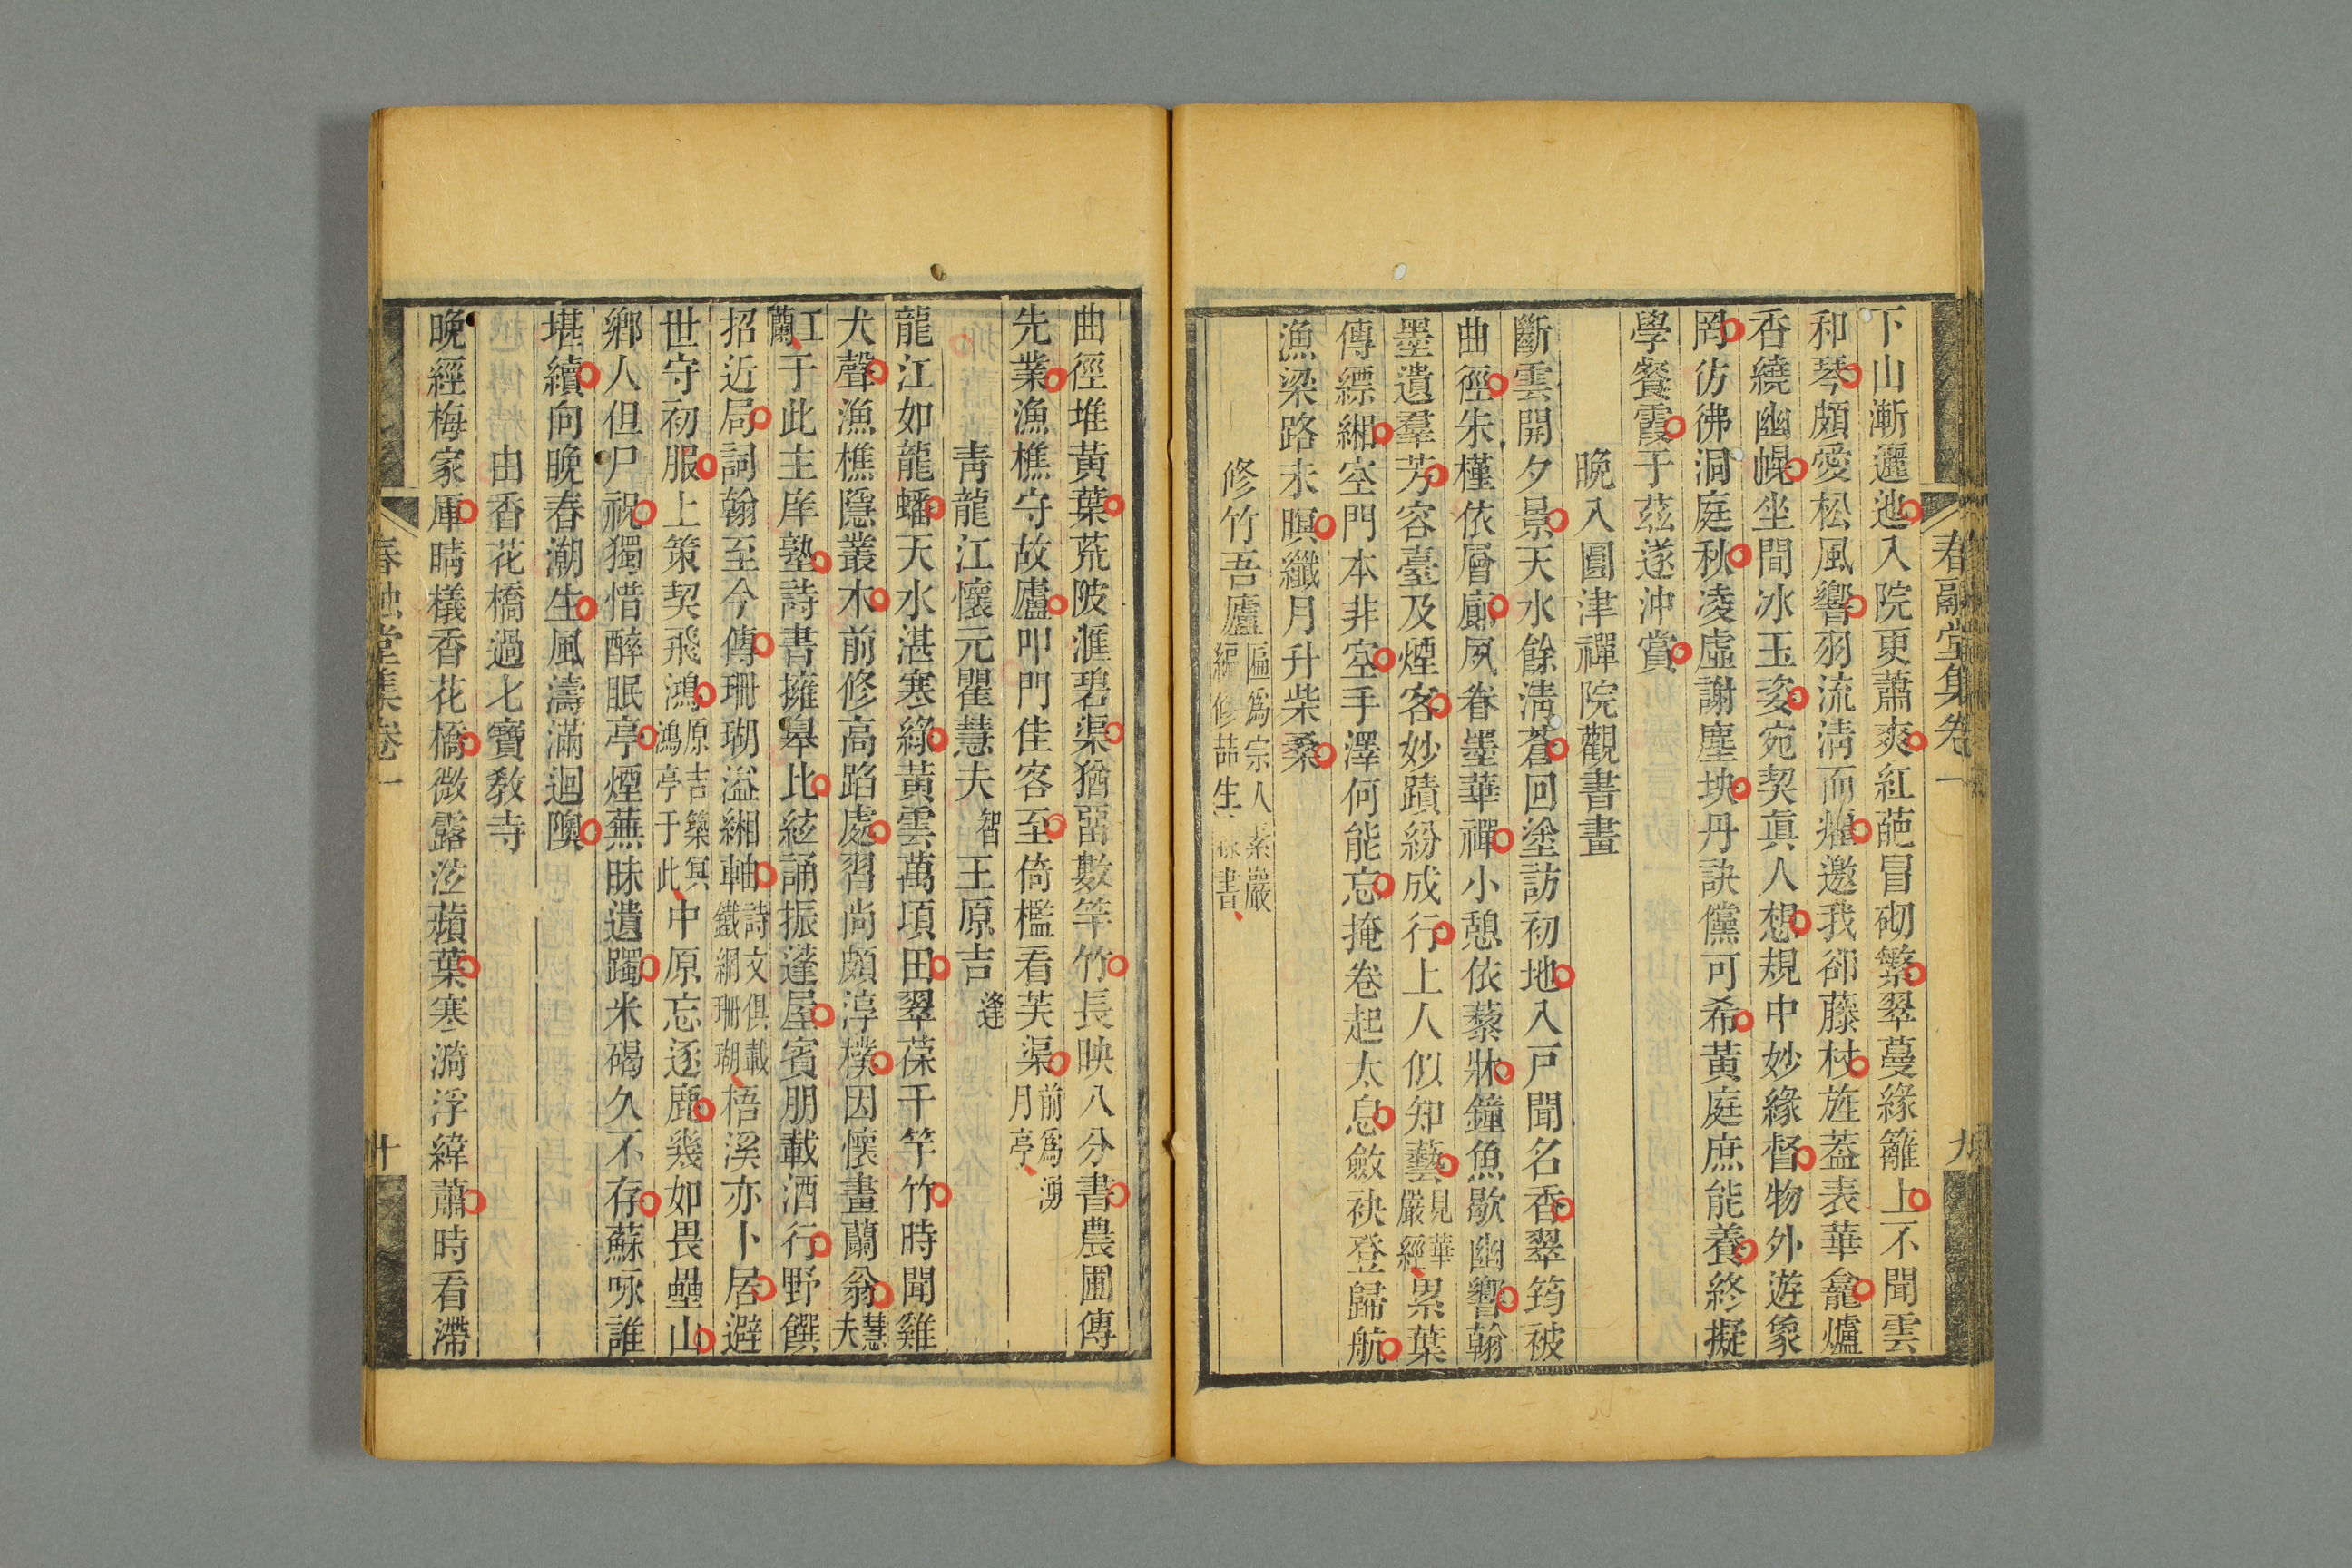 春融堂集卷一
九
下山漸邐迆入院更蕭爽紅葩冒砌繁翠蔓緣籬上不聞雲
和琴頗愛松風響羽流清而癯邀我卻藤杖旌蓋表華龕爐
香繞幽幌坐閒冰玉姿宛契真人想規中妙緣督物外遊象
罔彷彿洞庭秋凌虛謝塵坱丹訣儻可希黃庭庶能養終擬
學餐霞于茲遂沖賞
晚入圓津禪院觀書畫
斷雲開夕景天水餘清蒼回塗訪初地入戸聞名香翠筠被
曲徑朱槿依層廊夙眷墨華禪小憩依藜牀鐘魚歇幽響翰
墨遺羣芳容臺及煙客妙蹟紛成行上人似知藝見華嚴經累葉
傳縹緗空門本非空手澤何能忘掩卷起太息斂袂登歸航
漁梁路未暝纖月升柴桑
修竹吾廬匾為宗人素嚴編修喆生書
曲徑堆黃葉荒陂滙碧渠猶畱數竿竹長映八分書農圃傳
先業漁樵守故廬叩門佳客至倚檻看芙渠前爲湧月亭
青龍江懷元瞿慧夫智王原吉逢
龍江如龍蟠天水湛寒綠黃雲萬頃田翠葆千竿竹時聞雞
犬聲漁樵隱叢木前修高蹈處習尚頗淳樸因懷畫蘭翁慧夫
工蘭于此主庠塾詩書擁皋比絃誦振蓬屋賓朋載酒行野饌
招近局詞翰至今傳珊瑚溢緗軸詩文俱載鐵網珊瑚梧溪亦卜居避
世守初服上策契飛鴻原吉築冥鴻亭于此中原忘逐鹿幾如畏壘山
鄉人但尸祝獨惜醉眠亭煙蕪昧遺躅米碣久不存蘇咏誰
堪續向晚春潮生風濤滿迴隩
由香花橋過七寶敎寺
晚經梅家厙晴檥香花橋微露泫蘋葉寒漪浮緯蕭時看滯
春融堂集卷一
十